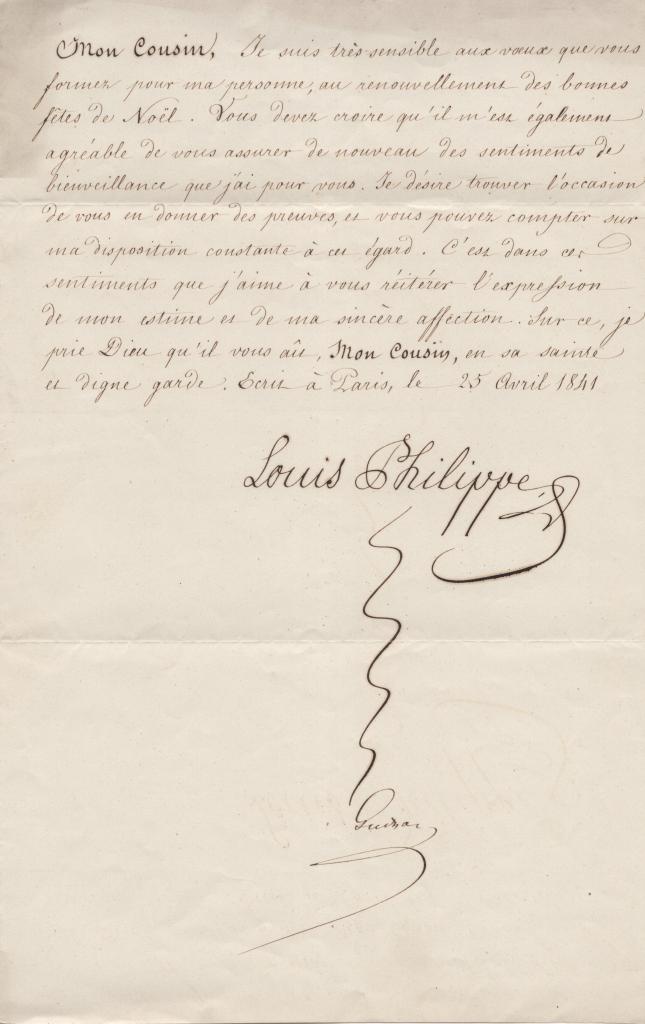 Mon Cousin, Je suis très-sensible aux vœux que vous
formez pour ma personne, au renouvellement des bonnes
fêtes de Noël. Vous devez croire qu'il m'est également
agréable de vous assurer de nouveau des sentiments de
bienveillance que j'ai pour vous. Je désire trouver l'occasion
de vous en donner des preuves, et vous pouvez compter sur
ma disposition constante à cet égard. C'est dans ces
sentiments que j'aime à vous réitérer l'expression
de mon estime et de ma sincère affection. Sur ce, je
prie Dieu qu'il vous ait, Mon Cousin, en sa sainte
et digne garde. Ecrit à Paris, le 25 Avril 1841
Louis Philippe
Guizot